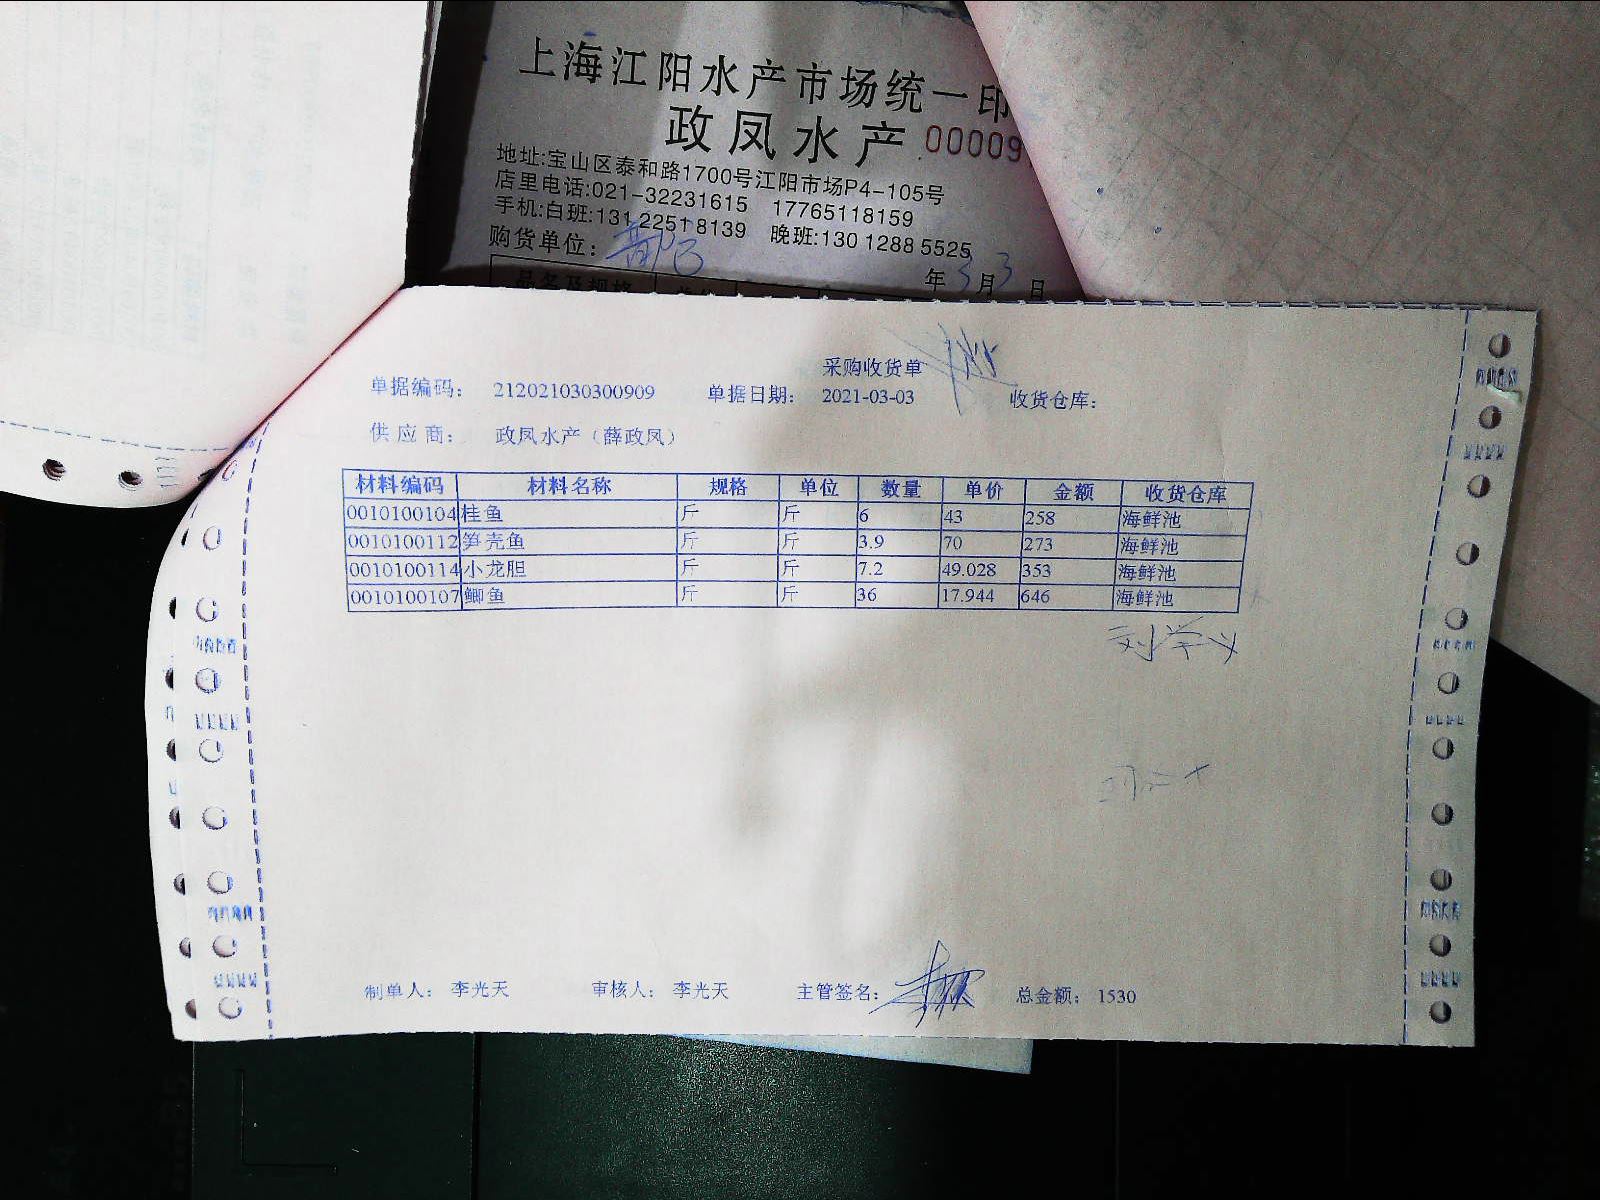 上海江阳水产市场统一印
政凤水产 00009
地址:宝山区泰和路1700号江阳市场P4-105号
店里电话:021-32231615 17765118159
手机:白班:131 2251 8139 晚班:130 1288 5525
购货单位:
年 3月3日
品名及规格 单价
采购收货单
单据编码: 212021030300909 单据日期: 2021-03-03 收货仓库:
供应商: 政凤水产（薛政凤）
材料编码 材料名称 规格 单位 数量 单价 金额 收货仓库
0010100104 桂鱼 斤 斤 6 43 258 海鲜池
0010100112 笋壳鱼 斤 斤 3.9 70 273 海鲜池
0010100114 小龙胆 斤 斤 7.2 49.028 353 海鲜池
0010100107 鲫鱼 斤 斤 36 17.944 646 海鲜池
刘学义
制单人: 李光天 审核人: 李光天 主管签名: 总金额: 1530